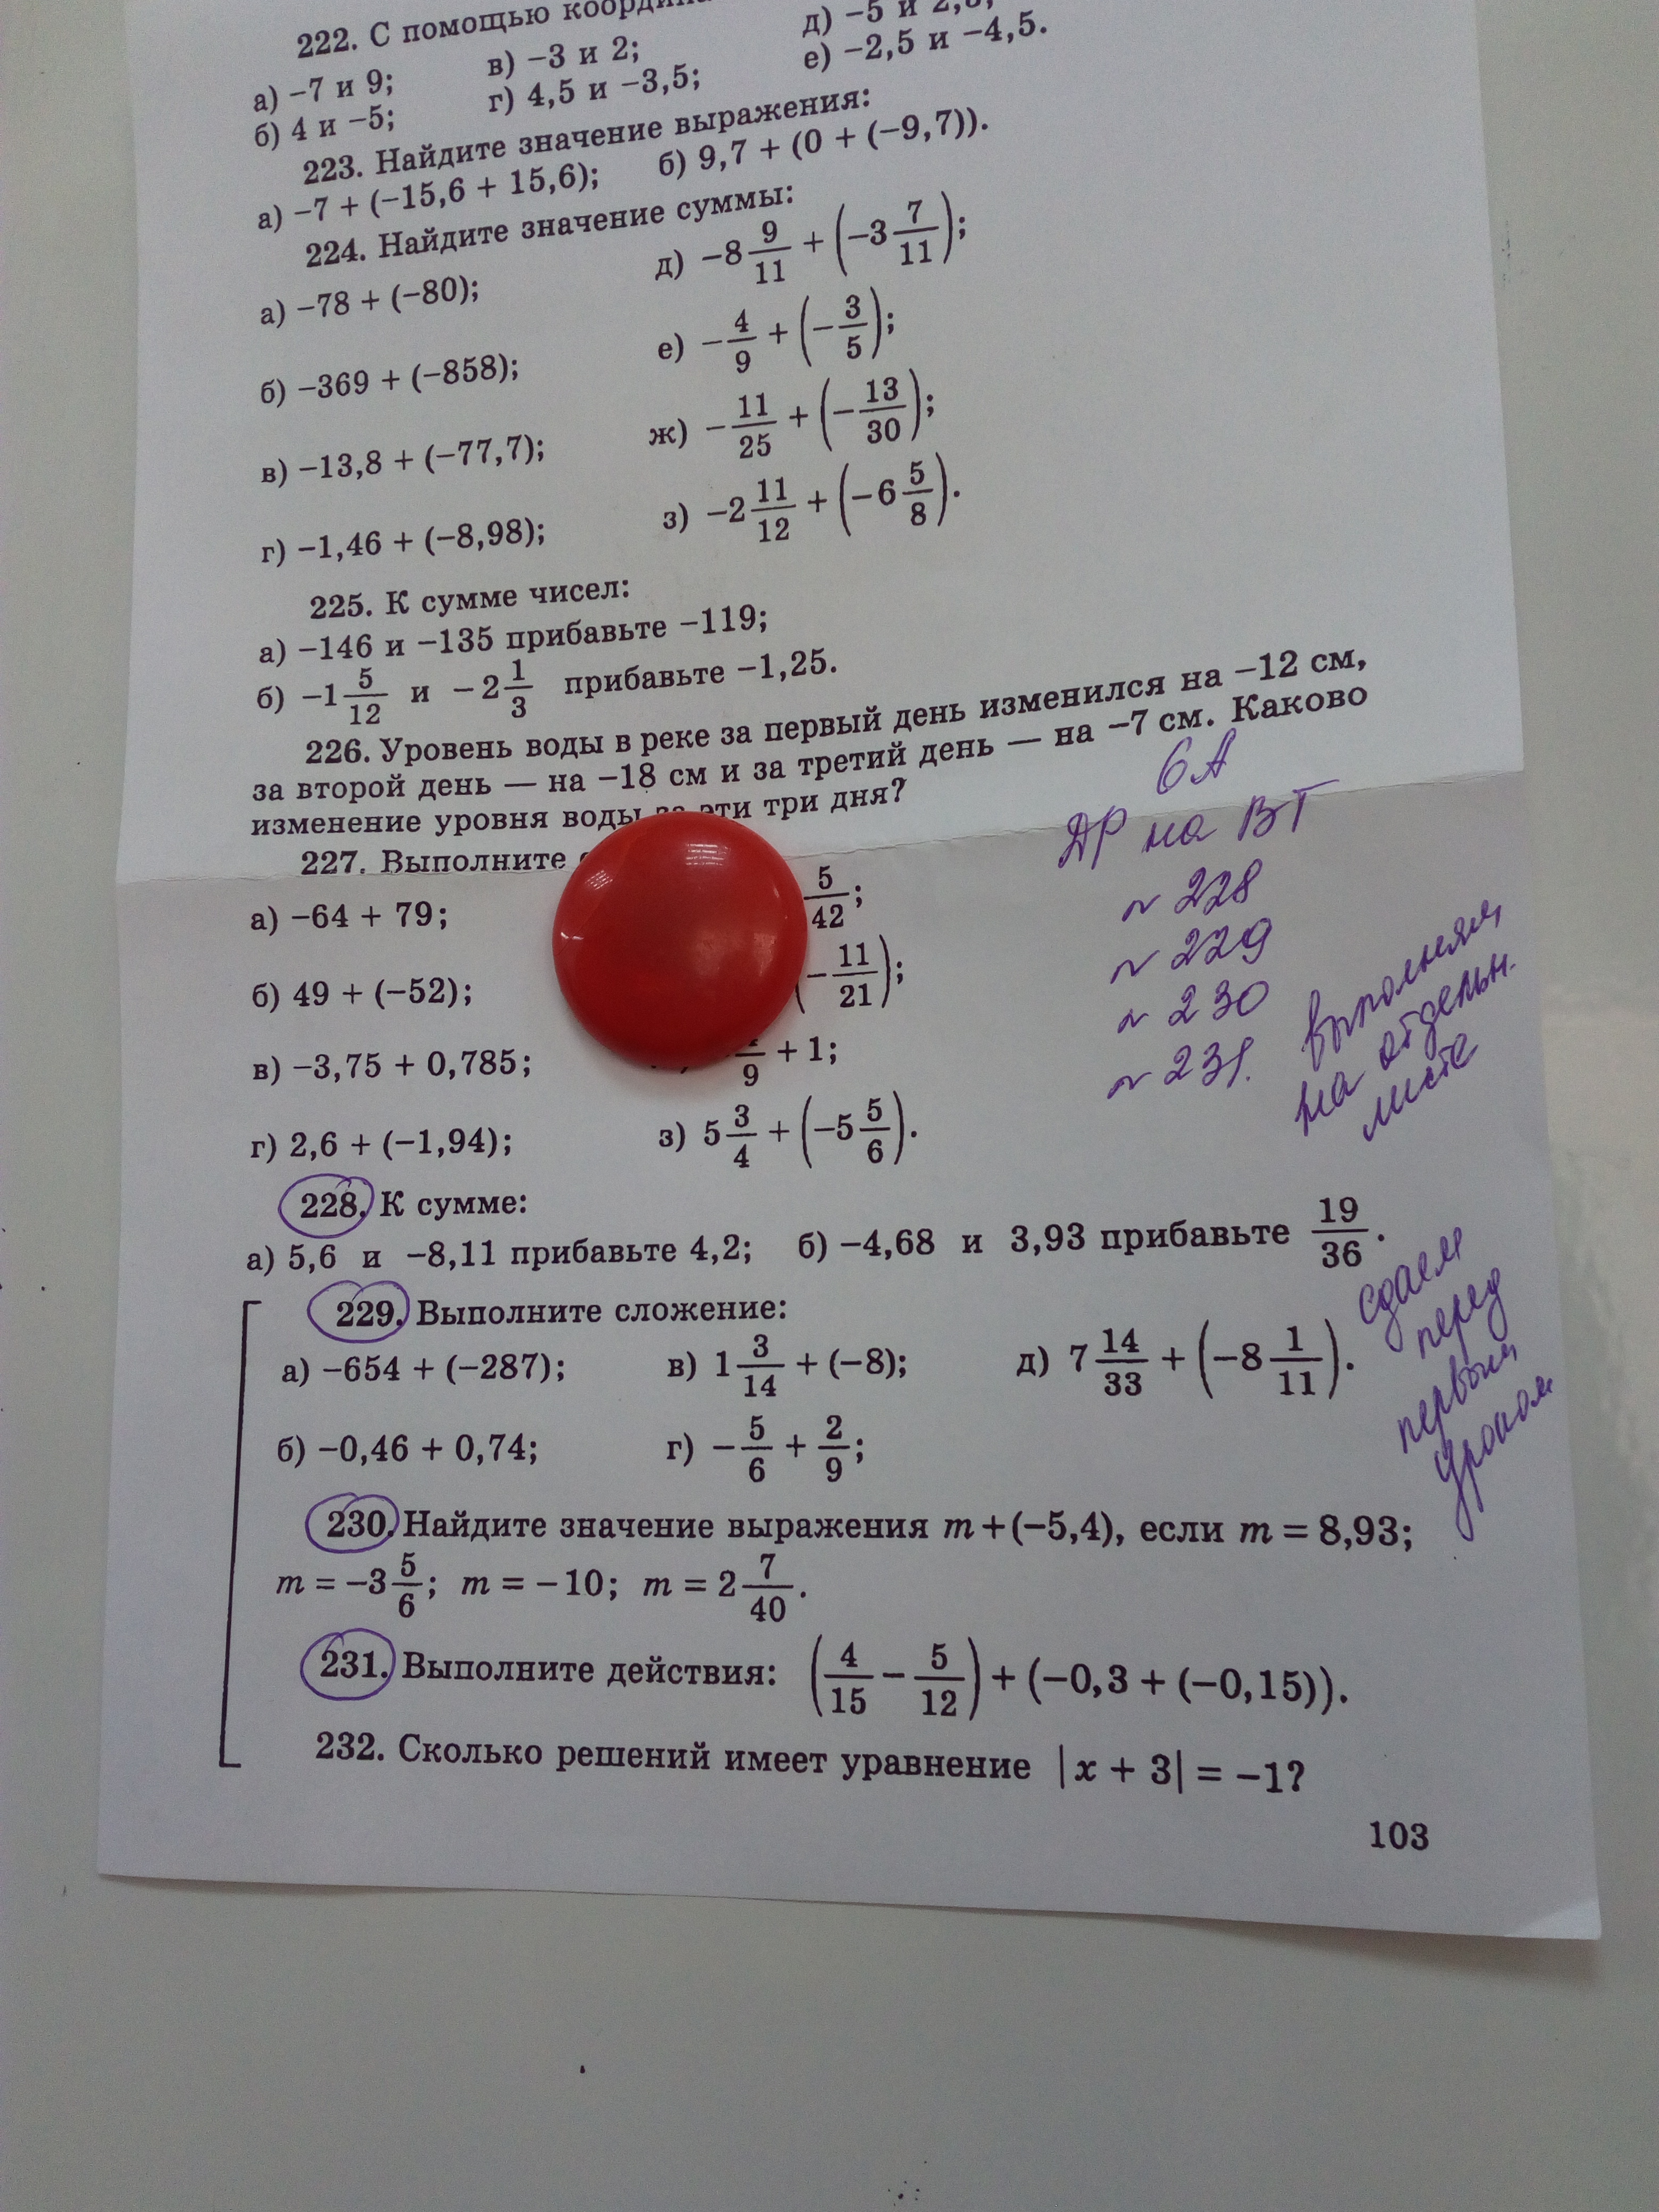 222. С помощью
а) −7 и 9; в) −3 и 2; д) −5 и
б) 4 и −5; г) 4,5 и −3,5; е) −2,5 и −4,5.
223. Найдите значение выражения:
а) −7 + (−15,6 + 15,6); б) 9,7 + (0 + (−9,7)).
224. Найдите значение суммы:
а) −78 + (−80); д) −8 9/11 + (−3 7/11);
б) −369 + (−858); е) −4/9 + (−3/5);
в) −13,8 + (−77,7); ж) −11/25 + (−13/30);
г) −1,46 + (−8,98); з) −2 11/12 + (−6 5/8).
225. К сумме чисел:
а) −146 и −135 прибавьте −119;
б) −1 5/12 и −2 1/3 прибавьте −1,25.
226. Уровень воды в реке за первый день изменился на −12 см,
за второй день — на −18 см и за третий день — на −7 см. Каково
изменение уровня воды за эти три дня?
6А
ДР на ВТ
~ 228
~ 229
~ 230
~ 231.
выполняем
на отдельн.
листе
227. Выполните
а) −64 + 79; 5/42;
б) 49 + (−52); (−11/21);
в) −3,75 + 0,785; /9 + 1;
г) 2,6 + (−1,94); з) 5 3/4 + (−5 5/6).
228. К сумме:
а) 5,6 и −8,11 прибавьте 4,2; б) −4,68 и 3,93 прибавьте 19/36.
сдаем
перед
первым
уроком
229. Выполните сложение:
а) −654 + (−287); в) 1 3/14 + (−8); д) 7 14/33 + (−8 1/11).
б) −0,46 + 0,74; г) −5/6 + 2/9;
230. Найдите значение выражения m + (−5,4), если m = 8,93;
m = −3 5/6; m = −10; m = 2 7/40.
231. Выполните действия: (4/15 − 5/12) + (−0,3 + (−0,15)).
232. Сколько решений имеет уравнение |x + 3| = −1?
103